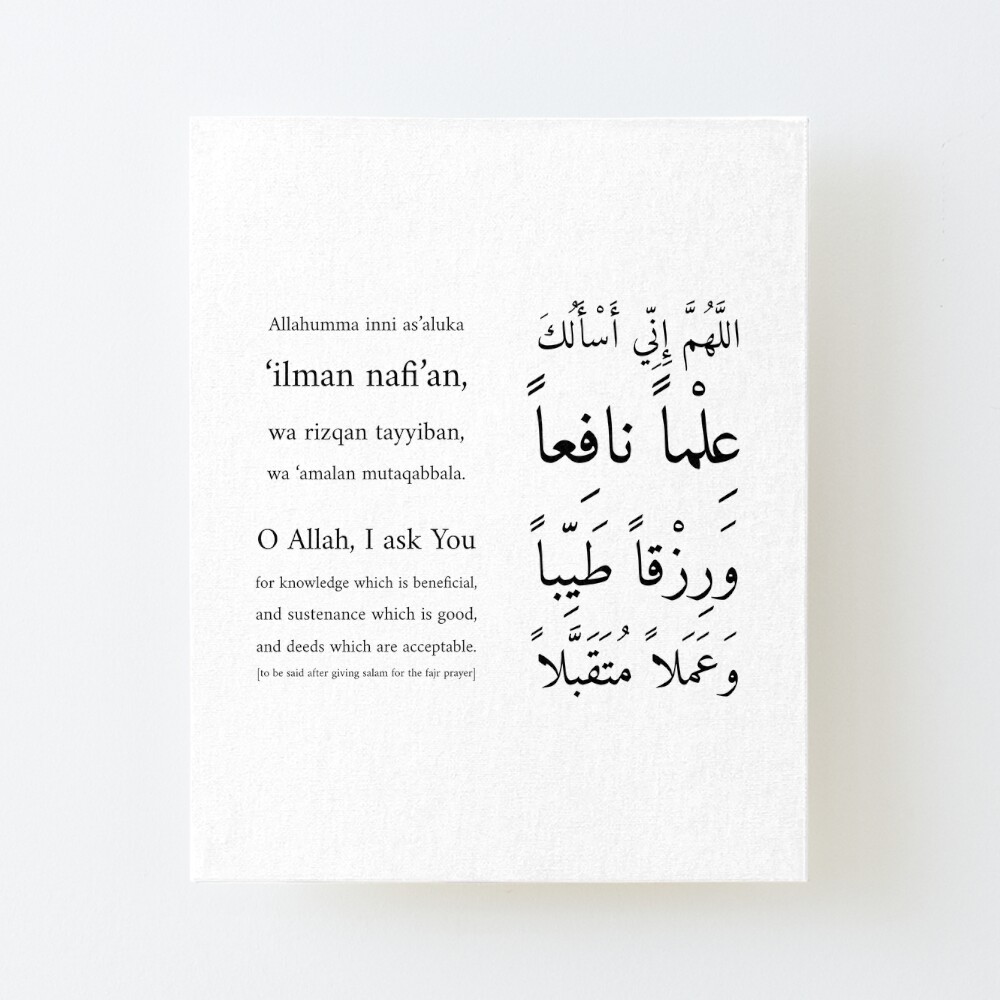 Allahumma inni as’aluka
‘ilman nafi’an,
wa rizqan tayyiban,
wa ‘amalan mutaqabbala.
O Allah, I ask You
for knowledge which is beneficial,
and sustenance which is good,
and deeds which are acceptable.
[to be said after giving salam for the fajr prayer]
اللَّهُمَّ إِنِّي أَسْأَلُكَ
عِلْماً نافِعاً
وَرِزْقاً طَيِّباً
وَعَمَلاً مُتَقَبَّلاً